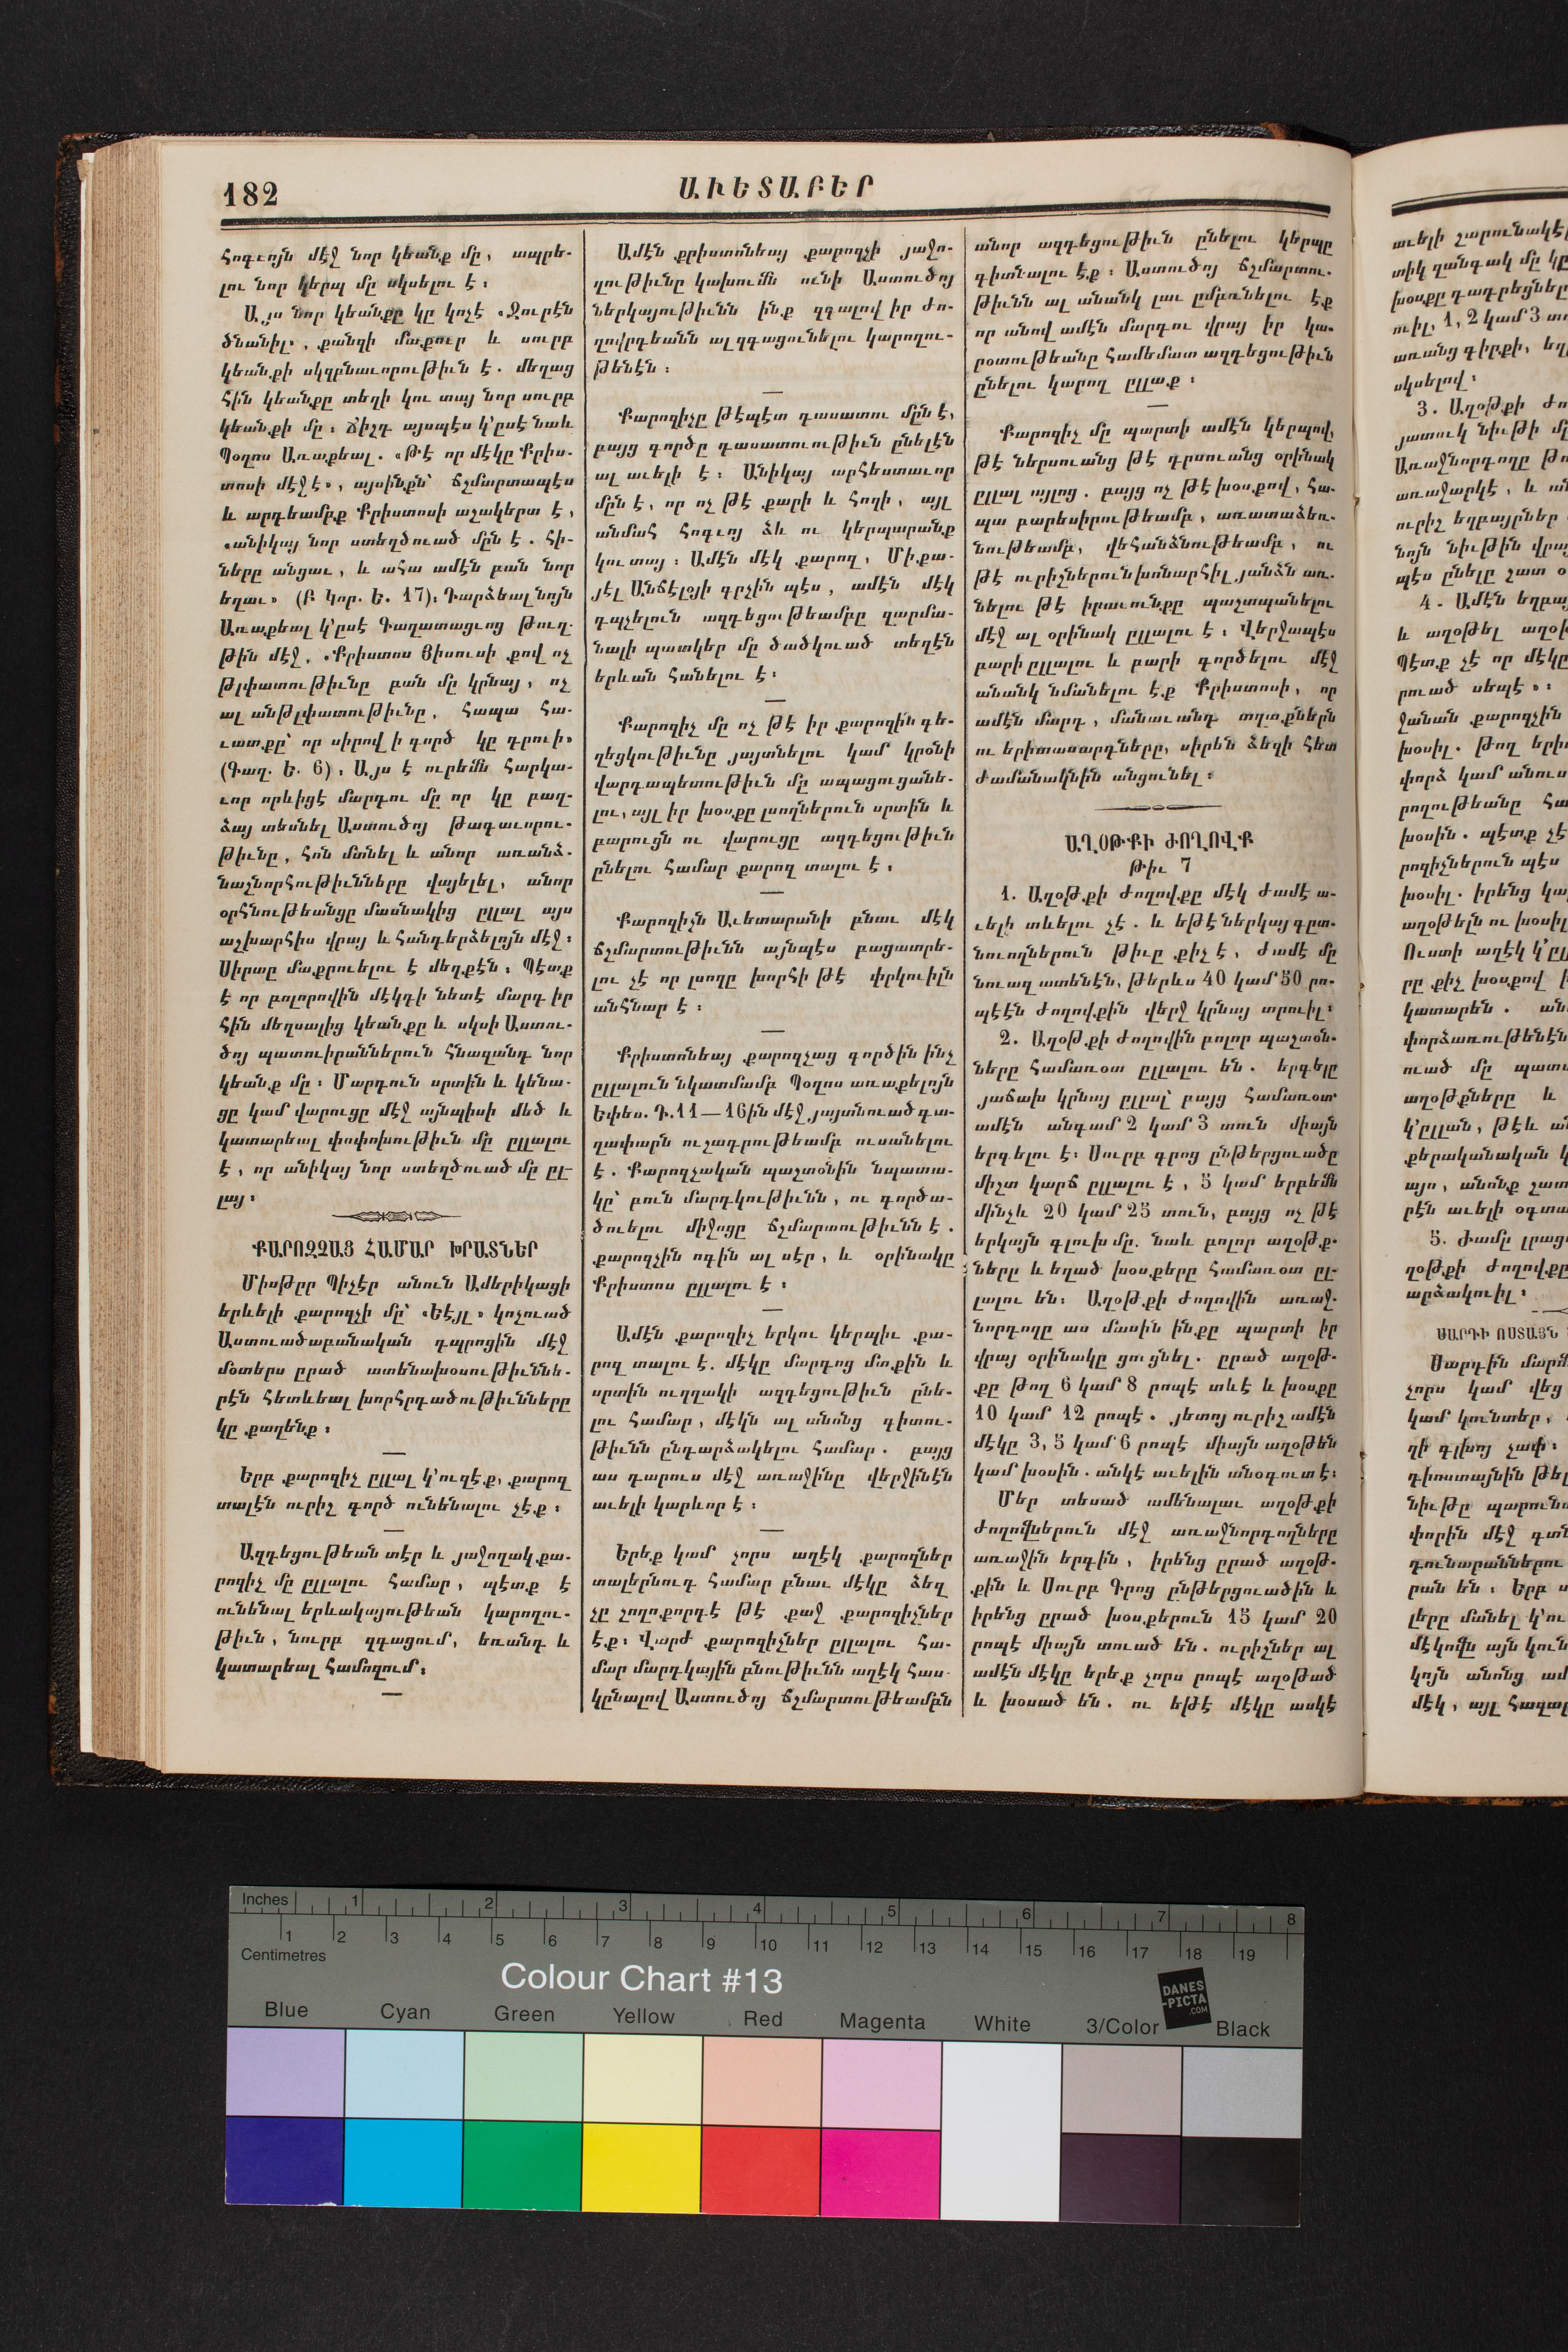 182
ԱՒԵՏԱԲԵՐ
հոգւոյն մէջ նոր կեանք մը, ապրե-
լու նոր կերպ մը սկսելու է։
Այս նոր կեանքը կը կոչէ «Ջուրէն
ծնանիլ», քանզի մաքուր և սուրբ
կեանքի սկզբնաւորութիւն է. մեղաց
հին կեանքը տեղի կու տայ նոր սուրբ
կեանքի մը։ Ճիշդ այսպէս կ՚ըսէ նաև
Պօղոս Առաքեալ. «Թէ որ մէկը Քրիս-
տոսի մէջ է», այսինքն՝ ճշմարտապէս
և արդեամբք Քրիստոսի աչակերտ է,
«անիկայ նոր ստեղծուած մըն է. հի-
ները անցաւ, և ահա ամէն բան նոր
եղաւ» (Բ Կոր. Ե. 17)։ Դարձեալ նոյն
Առաքեալ կ՚ըսէ Գաղատացւոց թուղ-
թին մէջ. «Քրիստոս Յիսուսի քով ոչ
թլփատութիւնը բան մը կրնայ, ոչ
ալ անթլփատութիւնը, հապա հա-
ւատքը՝ որ սիրով ի գործ կը դրուի»
(Գաղ. Ե. 6)։ Այս է ուրեմն հարկա-
ւոր որևիցէ մարդու մը որ կը բաղ-
ձայ տեսնել Աստուծոյ թագաւորու-
թիւնը, հոն մտնել և անոր առանձ-
նաշնորհութիւնները վայելել, անոր
օրհնութեանցը մասնակից ըլլալ այս
աշխարհիս վրայ և հանդերձելոյն մէջ։
Սիրտը մաքրուելու է մեղքէն։ Պէտք
է որ բոլորովին մէկդի նետէ մարդ իր
հին մեղսալից կեանքը և սկսի Աստու-
ծոյ պատուիրաններուն հնազանդ նոր
կեանք մը։ Մարդուն սրտին և կենա-
ցը կամ վարուցը մէջ այնպիսի մեծ և
կատարեալ փոփոխութիւն մը ըլլալու
է, որ անիկայ նոր ստեղծուած մը ըլ-
լայ։
ՔԱՐՈԶՉԱՑ ՀԱՄԱՐ ԽՐԱՏՆԵՐ
Միսթըր Պիչէր անուն Ամերիկացի
երևելի քարոզչի մը՝ «Եէյլ» կոչուած
Աստուածաբանական դպրոցին մէջ
մօտերս ըրած ատենախօսութիւննե-
րէն հետևեալ խորհրդածութիւնները
կը քաղենք։
Երբ քարոզիչ ըլլալ կ՚ուզէք, քարոզ
տալէն ուրիշ գործ ունենալու չէք։
Ազդեցութեան տէր և յաջողակ քա-
րոզիչ մը ըլլալու համար, պէտք է
ունենալ երևակայութեան կարողու-
թիւն, նուրբ զգացում, եռանդ և
կատարեալ համոզում։
Ամէն քրիստոնեայ քարոզչի յաջո-
ղութիւնը կախումն ունի Աստուծոյ
ներկայութիւնն ինք զգալով իր ժո-
ղովրդեանն ալ զգացունելու կարողու-
թենէն։
Քարոզիչը թէպէտ դասատու մըն է,
բայց գործը դասատուութիւն ընելէն
ալ աւելի է։ Անիկայ արհեստաւոր
մըն է, որ ոչ թէ քարի և հողի, այլ
անմահ հոգւոյ ձև ու կերպարանք
կու տայ։ Ամէն մէկ քարոզ, Միքա-
յէլ Անճէլօյի գրչին պէս, ամէն մէկ
դպչելուն ազդեցութեամբը զարմա-
նալի պատկեր մը ծածկուած տեղէն
երևան հանելու է։
Քարոզիչ մը ոչ թէ իր քարոզին գե-
ղեցկութիւնը յայտնելու կամ կրօնի
վարդապետութիւն մը ապացուցանե-
լու, այլ իր խօսքը լսողներուն սրտին և
բարուցն ու վարուցը ազդեցութիւն
ընելու համար քարոզ տալու է։
Քարոզիչն Աւետարանի բնաւ մէկ
ճշմարտութիւնն այնպէս բացատրե-
լու չէ որ լսողը խորհի թէ փրկուիլն
անհնար է։
Քրիստոնեայ քարոզչաց գործին ինչ
ըլլալուն նկատմամբ Պօղոս առաքելոյն
Եփես. Դ.11—16ին մէջ յայտնուած գա-
ղափարն ուշադրութեամբ ուսանելու
է. Քարոզչական պաշտօնին նպատա-
կը՝ բուն մարդկութիւնն, ու գործա-
ծուելու միջոցը ճշմարտութիւնն է.
քարոզչին ոգին ալ սէր, և օրինակը
Քրիստոս ըլլալու է։
Ամէն քարոզիչ երկու կերպիւ քա-
րոզ տալու է. մէկը մարդոց մտքին և
սրտին ուղղակի ազդեցութիւն ընե-
լու համար, մէկն ալ անոնց գիտու-
թիւնն ընդարձակելու համար. բայց
աս դարուս մէջ առաջինը վերջինէն
աւելի կարևոր է։
Երեք կամ չորս աղէկ քարոզներ
տալերնուդ համար բնաւ մէկը ձեզ
չը շողոքորդէ թէ քաջ քարոզիչներ
էք։ Վարժ քարոզիչներ ըլլալու հա-
մար մարդկային բնութիւնն աղէկ հաս-
կընալով Աստուծոյ ճշմարտութեամբն
անոր ազդեցութիւն ընելու կերպը
գիտնալու էք։ Աստուծոյ ճշմարտու-
թիւնն ալ անանկ լաւ ըմբռնելու էք
որ անով ամէն մարդու վրայ իր կա-
րօտութեանը համեմատ ազդեցութիւն
ընելու կարող ըլլաք։
Քարոզիչ մը պարտի ամէն կերպով,
թէ ներսուանց թէ դրսուանց օրինակ
ըլլալ այլոց. բայց ոչ թէ խօսքով, հա-
պա բարեսիրութեամբ, առատաձեռ-
նութեամբ, վեհանձնութեամբ, ու
թէ ուրիշներուն խոնարհիլ յանձն առ-
նելու թէ իրաւունքը պաշտպանելու
մէջ ալ օրինակ ըլլալու է։ Վերջապէս
բարի ըլլալու և բարի գործելու մէջ
անանկ նմանելու էք Քրիստոսի, որ
ամէն մարդ, մանաւանդ տղաքներն
ու երիտասարդները, սիրեն ձեզի հետ
ժամանակնին անցունել։
ԱՂՕԹՔԻ ԺՈՂՈՎՔ
Թիւ 7
1. Աղօթքի ժողովքը մէկ ժամէ ա-
ւելի տևելու չէ. և եթէ ներկայ գըտ-
նուողներուն թիւը քիչ է, ժամէ մը
նուազ ատենէն, թերևս 40 կամ 50 րո-
պէէն ժողովքին վերջ կրնայ տրուիլ։
2. Աղօթքի ժողովին բոլոր պաշտօն-
ները համառօտ ըլլալու են. երգելը
յաճախ կրնայ ըլլալ՝ բայց համառօտ
ամէն անգամ 2 կամ 3 տուն միայն
երգելու է։ Սուրբ գրոց ընթերցուածը
միշտ կարճ ըլլալու է, 5 կամ երբեմն
մինչև 20 կամ 25 տուն, բայց ոչ թէ
երկայն գլուխ մը. նաև բոլոր աղօթք-
ները և եղած խօսքերը համառօտ ըլ-
լալու են։ Աղօթքի ժողովին առաջ-
նորդողը աս մասին ինքը պարտի իր
վրայ օրինակը ցուցնել. ըրած աղօթ-
քը թող 6 կամ 8 րոպէ տևէ և խօսքը
10 կամ 12 րոպէ. յետոյ ուրիշ ամէն
մէկը 3, 5 կամ 6 րոպէ միայն աղօթեն
կամ խօսին. անկէ աւելին անօգուտ է։
Մեր տեսած ամենալաւ աղօթքի
ժողովներուն մէջ առաջնորդողները
առաջին երգին, իրենց ըրած աղօթ-
քին և Սուրբ Գրոց ընթերցուածին և
իրենց ըրած խօսքերուն 15 կամ 20
րոպէ միայն տուած են. ուրիշներ ալ
ամէն մէկը երեք չորս րոպէ աղօթած
և խօսած են. ու եթէ մէկը ասկէ
աւելի շարունակէ
տիկ զանգակ մը կը
խօսքը դադրեցնել
ուիլ, 1, 2 կամ 3 տո
առանց գիրքի, եղ
սկսելով։
3. Աղօթքի ժո
յատուկ նիւթի մը
Առաջնորդողը թո
առաջարկէ, և ան
ուրիշ եղբայրներ
նոյն նիւթին վրայ
պէս ընելը շատ օ
4. Ամէն եղբայ
և աղօթել աղօթ
Պէտք չէ որ մէկը
րուած սեպէ»։
Ջանան քարոզչին
խօսիլ. թող երի
փորձ կամ անուս
րողութեանը հա
խօսին. պէտք չէ
րոզիչներուն պէս
խօսիլ. իրենց կա
աղօթելն ու խօսիլ
Ուստի աղէկ կ՚ըլ
րը քիչ խօսքով
կատարեն. ան
փորձառութենէն
ուած մը պատ
աղօթքները և
կ՚ըլլան, թէև ան
քերականական կ
այո, անոնք շատ
րէն աւելի օգտա
5. Ժամը լրաց
ղօթքի ժողովքը
արձակուիլ։
ՍԱՐԴԻ ՈՍՏԱՅՆ
Սարդին մարմ
չորս կամ վեց
կամ կունտեր,
ղի գլխոյ չափ։
դիոստայնին թել
նիւթը պարունա
փորին մէջ գտն
գունարաններու
րան են։ Երբ ս
լերը մանել կ՚ու
մէկովն այն կուն
կոյն անոնց ամ
մէկ, այլ հազար
Inches 1 2 3 4 5 6 7 8
1 2 3 4 5 6 7 8 9 10 11 12 13 14 15 16 17 18 19
Centimetres
Colour Chart #13
DANES
-PICTA
.COM
Blue Cyan Green Yellow Red Magenta White 3/Color Black